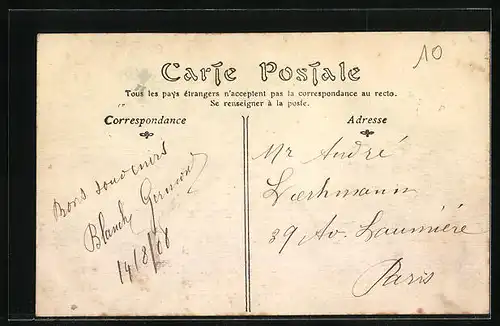 10
Carte Postale
Tous les pays étrangers n'acceptent pas la correspondance au recto.
Se renseigner à la poste.
Correspondance
Adresse
Bons souvenirs
Blanche
14/8/08
Mr André
39 Av. Laumière
Paris